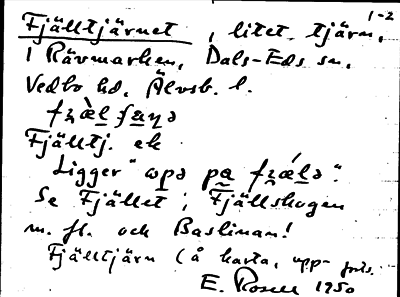 1-2
Fjälltjärnet, litet tjärn,
i Rävmarken, Dals-Eds sn.
Vedbo hd. Älvsb. l.
Fjälltj. ek
Ligger "
Se Fjället; Fjällskogen
m. fl. och Baslinan!
Fjälltjärn (å karta, upp-
E. Rosell 1950